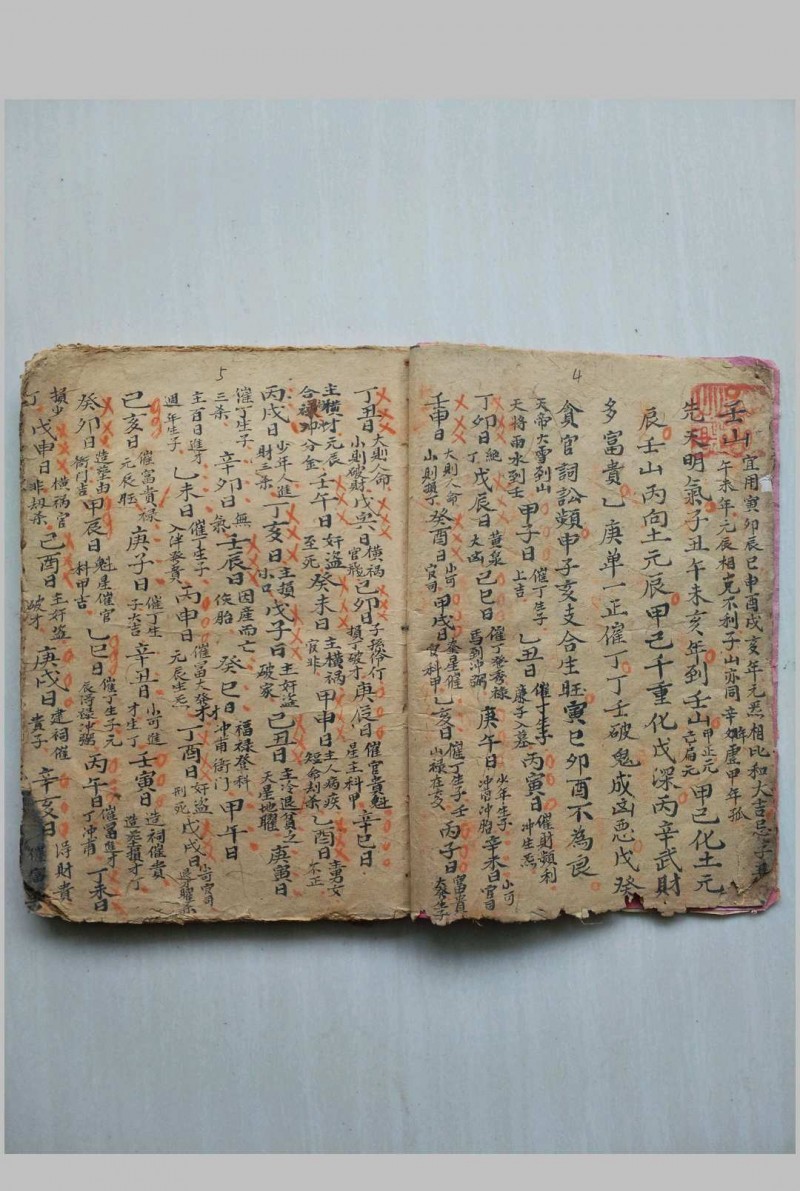 4
壬山 宜用寅卯辰巳申酉戌亥年元炁相比和大吉忌子丑
午未年元辰相克不利子山亦同辛 虛甲年孤
先天明氣子丑午未亥年到壬山 甲正元 吉局元 甲己化土元
辰壬山丙向土元辰甲己千重化戊深丙辛武財
多富貴乙庚单一正催丁丁壬破鬼成凶恶戊癸
貪官詞訟頻申子亥支合生旺寅巳卯酉不為良
天帝大雪到山 天将雨水到壬 甲子日 催丁生子 上吉 乙丑日 催丁生子 庫子入墓 丙寅日 催財頻利 冲生炁
丁卯日 絶丁 戊辰日 黄泉 大凶 己巳日 催丁登秀禄 馬到冲弼 庚午日 少年生子 冲 冲胎 辛未日 小可官司
壬申日 大則人命 小則損子 癸酉日 小可官司 甲戌日 星催 科甲 乙亥日 催丁生子壬 山禄在亥 丙子日 富貴 生子
5
丁丑日 大則人命 小則破財 戊寅日 横禍 官賍 己卯日 子孫伶仃 損丁破才 庚辰日 催官貴魁 星主科甲 辛巳日
主横才元辰 合禄冲分金 壬午日 奸盗 至死 癸未日 主横禍 官非 甲申日 主人病疾 短命劫杀 乙酉日 男女 不正
丙戌日 少年人進 財三杀 丁亥日 主損 小口 戊子日 主好盗 破家 己丑日 主冷退貧乏 天星地曜 庚寅日
催丁生子 三杀 辛卯日 無氣 壬辰日 因産而亡 伤胎 癸巳日 福禄登科 冲甫衙门 甲午日
主百日進才 週年生子 乙未日 催丁生子 入泮登貴 丙申日 催富大發才 元辰生炁 丁酉日 好盗 刑死 戊戌日 小可官司
己亥日 催富貴禄 元辰旺 庚子日 催丁生 子大吉 辛丑日 小可進 才生丁 壬寅日 造祠催貴 造葬損才丁
癸卯日 造葬由 衙門吉 甲辰日 魁星催官 科甲吉 乙巳日 催丁生子元 辰得禄冲弼 丙午日 催富隻才 丁冲甫 丁未日
損少丁 戊申日 横禍官 非刼杀 己酉日 主奸盗 破才 庚戌日 建祠催 貴子 辛亥日 得財貴